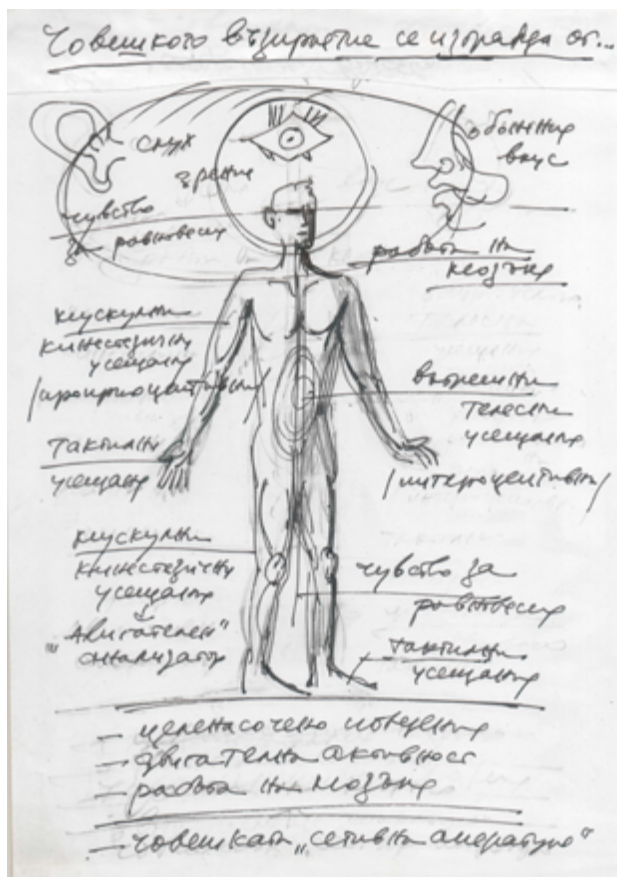 Човешкото възприятие се изгражда от...
слух
зрение
обоняние
вкус
чувство
за равновесие
работа на
мозъка
мускулни
кинестезични
усещания
/проприоцептивни/
вътрешни
телесни
усещания
/интероцептивни/
тактилни
усещания
мускулни
кинестезични
усещания
"двигателен"
анализатор
чувство за
равновесие
тактилни
усещания
— целенасочено поведение
— двигателна активност
— работа на мозъка
— човешката „сетивна апаратура"